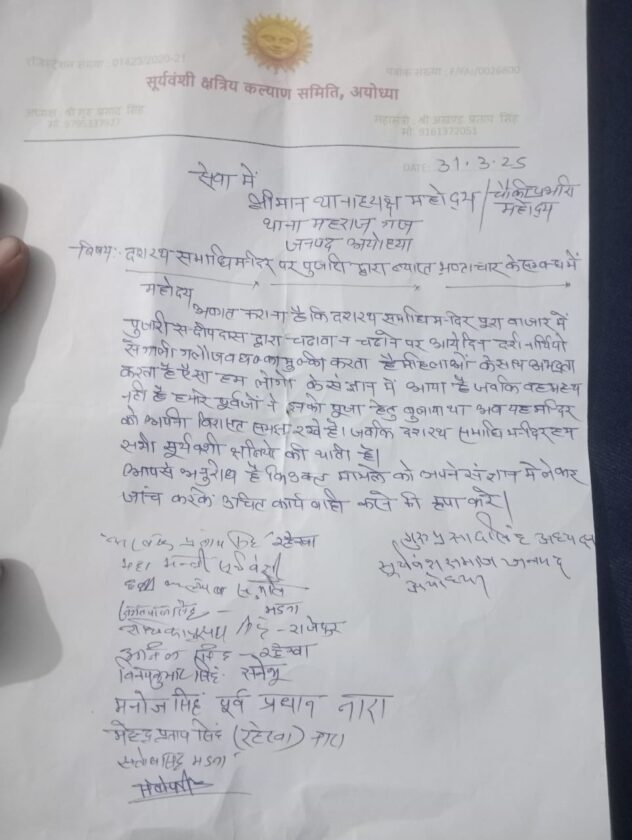 रजिस्ट्रेशन संख्या : 01423/2020-21
पत्रांक संख्या : F/FAI/0026600
सूर्यवंशी क्षत्रिय कल्याण समिति, अयोध्या
अध्यक्ष श्री गुरु प्रसाद सिंह
मो 9795337927
महामंत्री : श्री अखण्ड प्रताप सिंह
मो 9161372053
DATE: 31.3.25
सेवा में
श्रीमान थानाध्यक्ष महोदय / चौकी प्रभारी
महोदय
थाना महराज गंज
जनपद अयोध्या
विषय:- दशरथ समाधि मन्दिर पर पुजारी द्वारा व्याप्त भ्रष्टाचार के सम्बन्ध में
महोदय
अवगत कराना है कि दशरथ समाधि मन्दिर पूरा बाजार में
पुजारी सन्दीपदास द्वारा चढावा न चढाने पर आये दिन दर्शनार्थियो
से गाली गलौज व धक्का मुक्की करता है महिलाओं के साथ अभद्रता
करता है ऐसा हम लोगो के संज्ञान में आया है जबकि वह महन्थ
नही है हमारे पूर्वजों ने इनको पूजा हेतु बुलाया था अब यह मन्दिर
को अपनी विरासत समझ रखे है। जबकि दशरथ समाधि मन्दिर हम
सभी सूर्यवंशी क्षत्रियो की थाती है।
आपसे अनुरोध है कि उक्त मामले को अपने संज्ञान में लेकर
जांच करके उचित कार्यवाही करने की कृपा करे।
प्रताप सिंह रहेखा
गुरु प्रसाद सिंह अध्यक्ष
महा मन्त्री सूर्यवंशी
सूर्यवंश समाज जनपद
अयोध्या
मडना
सिंह - राजेपुर
अनिल सिंह - रहेखा
विनय कुमार सिंह सनेथू
मनोज सिंह पूर्व प्रधान नारा
महेन्द्र प्रताप सिंह (रहेखा) नारा
सन्तोष सिंह मडना